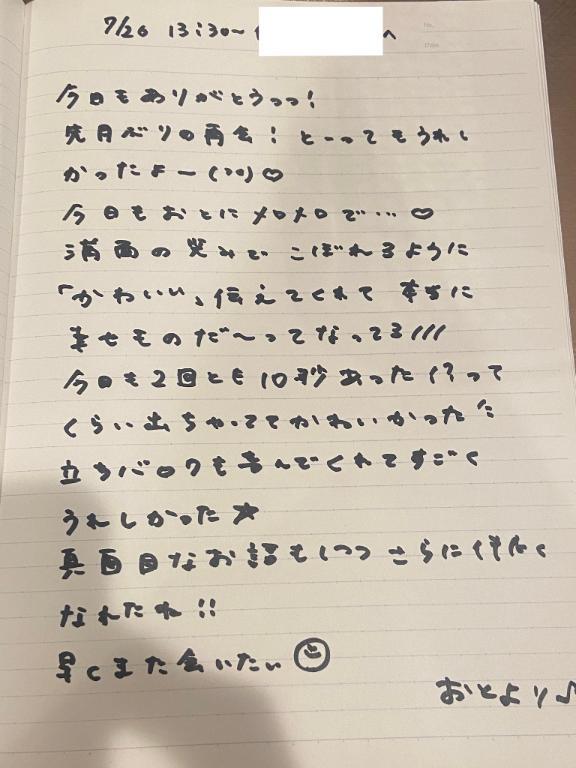 7/26 13:30〜 へ
今日もありがとうっっ!
先月ぶりの再会! とーってもうれし
かったよー(°°)♡
今日もおとにメロメロで…♡
満面の笑みで こぼれるように
「かわいい」伝えてくれて 本当に
幸せものだ〜ってなってる///
今日も2回とも10秒あった!?って
くらい出ちゃっててかわいかった
立ちバックも喜んでくれてすごく
うれしかった★
真面目なお話もしつつ さらに仲良く
なれたね!!
早くまた会いたい
おとより♪